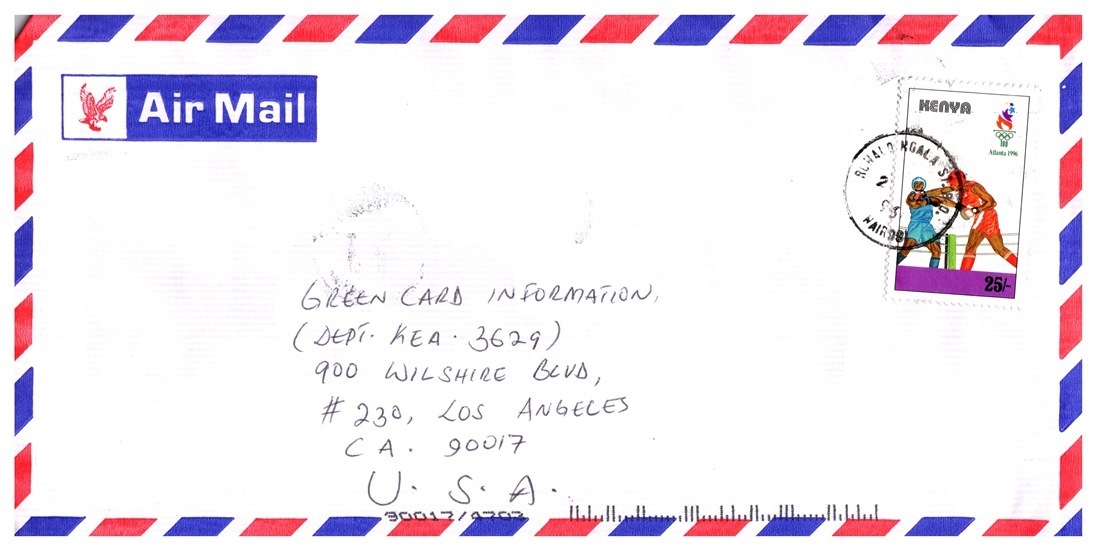 Air Mail
KENYA
100
Atlanta 1996
25/-
NAIROBI
GREEN CARD INFORMATION,
(DEPT. KEA. 3629)
900 WILSHIRE BLVD,
# 230, LOS ANGELES
CA. 90017
U. S. A.
90017/4703